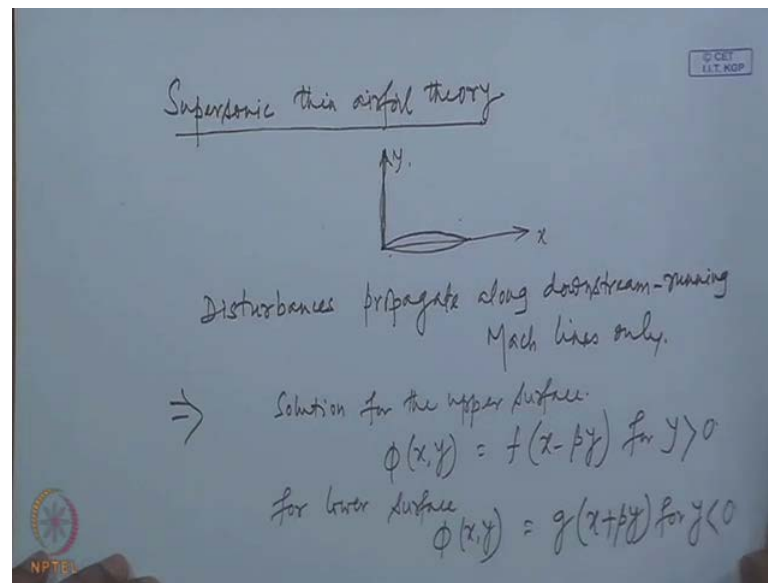 © CET
I.I.T. KGP
Supersonic thin airfoil theory
y
x
Disturbances propagate along downstream-running
Mach lines only.
⇒ Solution for the upper surface.
ϕ(x,y) = f(x-βy) for y>0
for lower surface
ϕ(x,y) = g(x+βy) for y<0
NPTEL